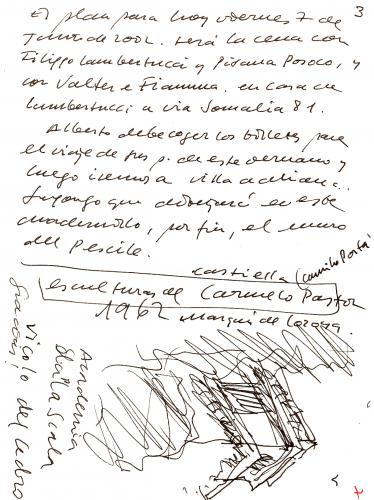 3
El plan para hoy viernes 7 de
Junio de 2002. será la cena con
Filippo Lambertucci y Pisana Posocco, y
con Valter e Fiamma. en casa de
Lumbertucci a via Somalia 81.
Alberto debe coger los billetes para
el viaje de de este verano y
luego iremos a villa adriana.
Supongo que dibujaré en este
cuadernillo, por fin, el muro
del Pecile.
castiella (Camilo Porta)
esculturas de Carmelo Pastor
1962 Marqués de
Academia
della Scala
vicolo del cedro